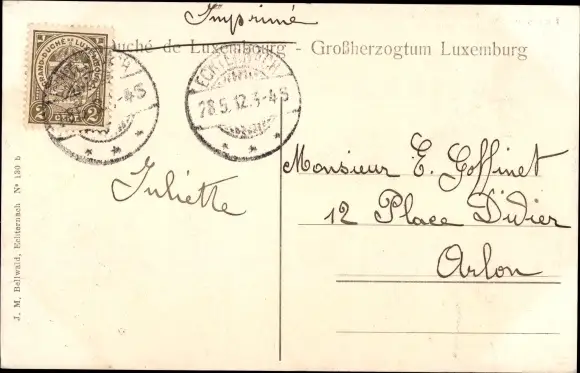 Imprimé
Grand-Duché de Luxembourg - Großherzogtum Luxemburg
GRAND DUCHÉ DE LUXEMBOURG
2 2
3-45
ECHTERNACH
28.5.12.3-45
Monsieur E. Goffinet
Juliette
12 Place Didier
Arlon
J. M. Bellwald, Echternach Nº 130 b